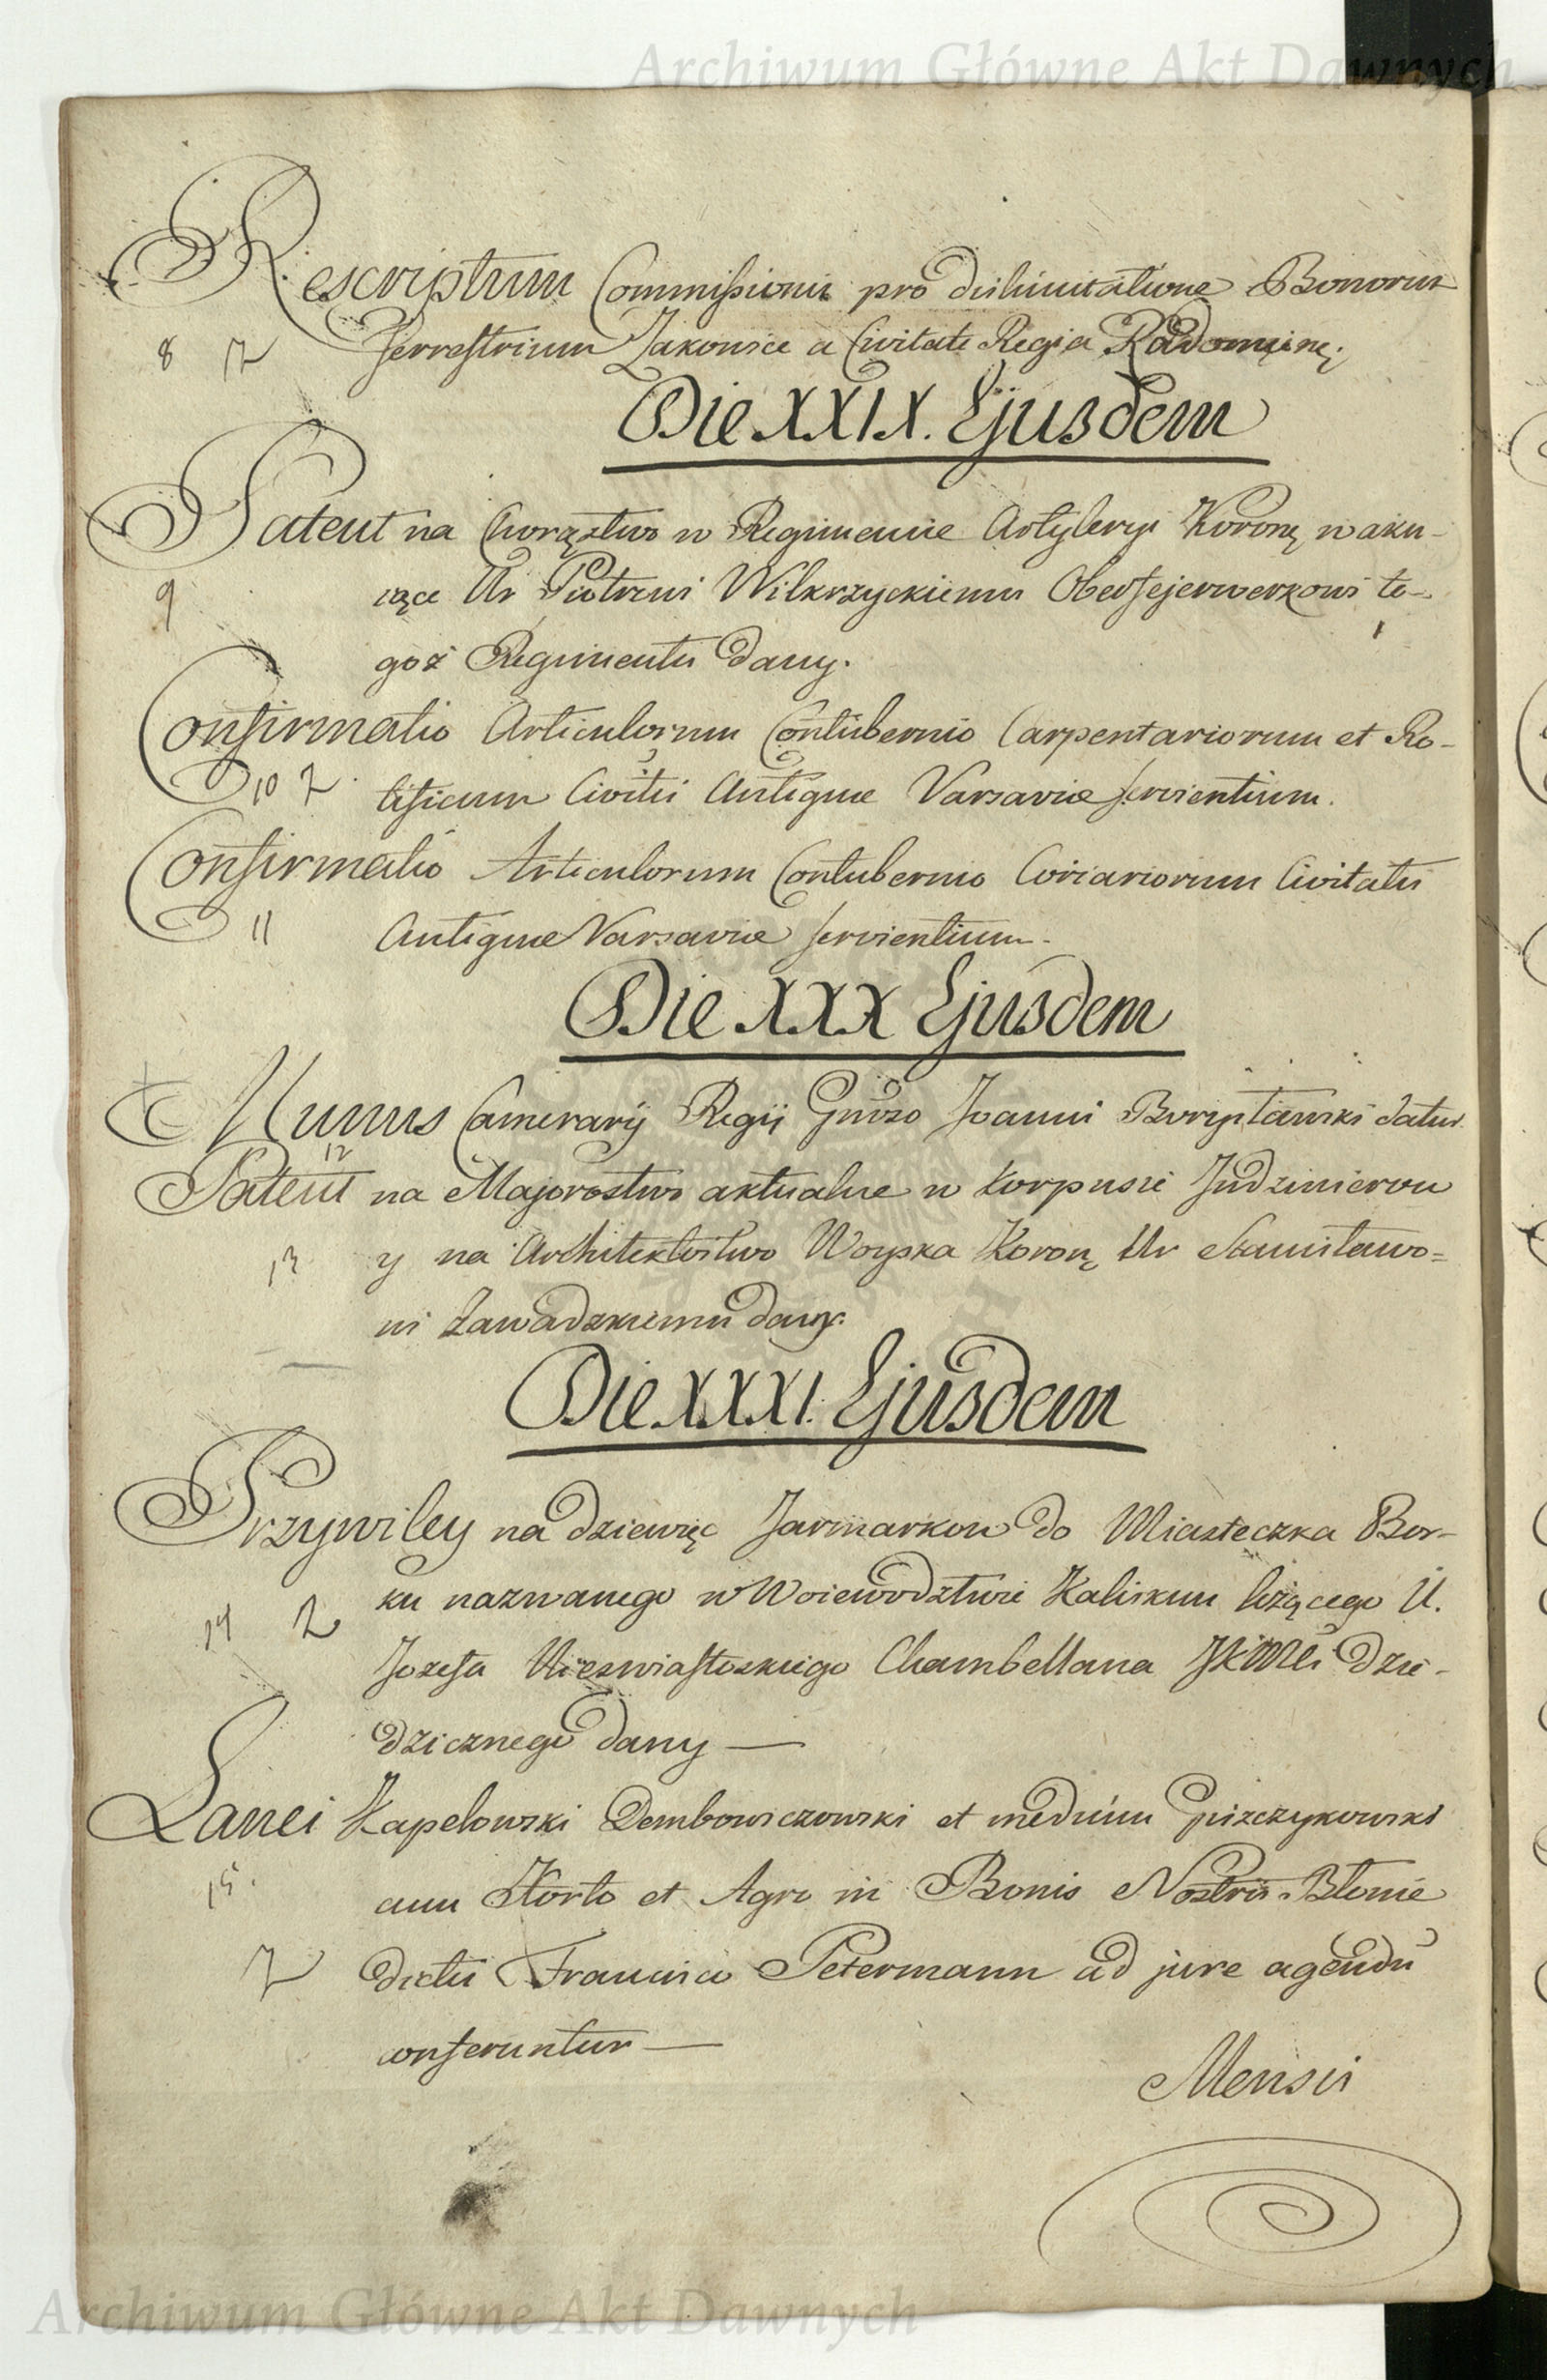 Archiwum Główne Akt Dawnych
Rescriptum Commissionis pro dislimitatione Bonorum
8 Terrestrium Zakowice a Civitate Regia
Die XXIX. Ejusdem
Patent na Chorąstwo w Regimencie Artyleryi Koronę waku-
9 iące Ur Piotrowi Wilkrzyckiemu Oberfejerwerkowi te-
goż Regimentu dany.
Confirmatio Articulorum Contubernio Carpentariorum et Ro-
10 2. tificum Civitti Antiquae Varsaviae servientium.
Confirmatio Articulorum Contubernio Coriariorum Civitatis
11 Antiquae Varsaviae servientium.
Die XXX Ejusdem
Munus Camerarij Regij Gnroso Joanni datur
12
Patent na Majorostwo aktualne w Korpusie Indzinierow
13 y na Architektostwo Woyska Koronę Ur Stanisławo=
wi Zawadzkiemu dany.
Die XXXI. Ejusdem
Przywiley na dziewięć Jarmarkow do Miasteczka Bor-
14 2 ku nazwanego w Woiewodztwie Kaliskim leżącego U.
Jozefa Chambellana JKMci dzie-
dzicznego dany —
Lanei Kapelowski Dembowiczowski et medium
15. cum Horto et Agro in Bonis Nostris Błonie
2 dictis Francisco Petermann ad jure agendu
conferuntur —
Mensis
Archiwum Główne Akt Dawnych